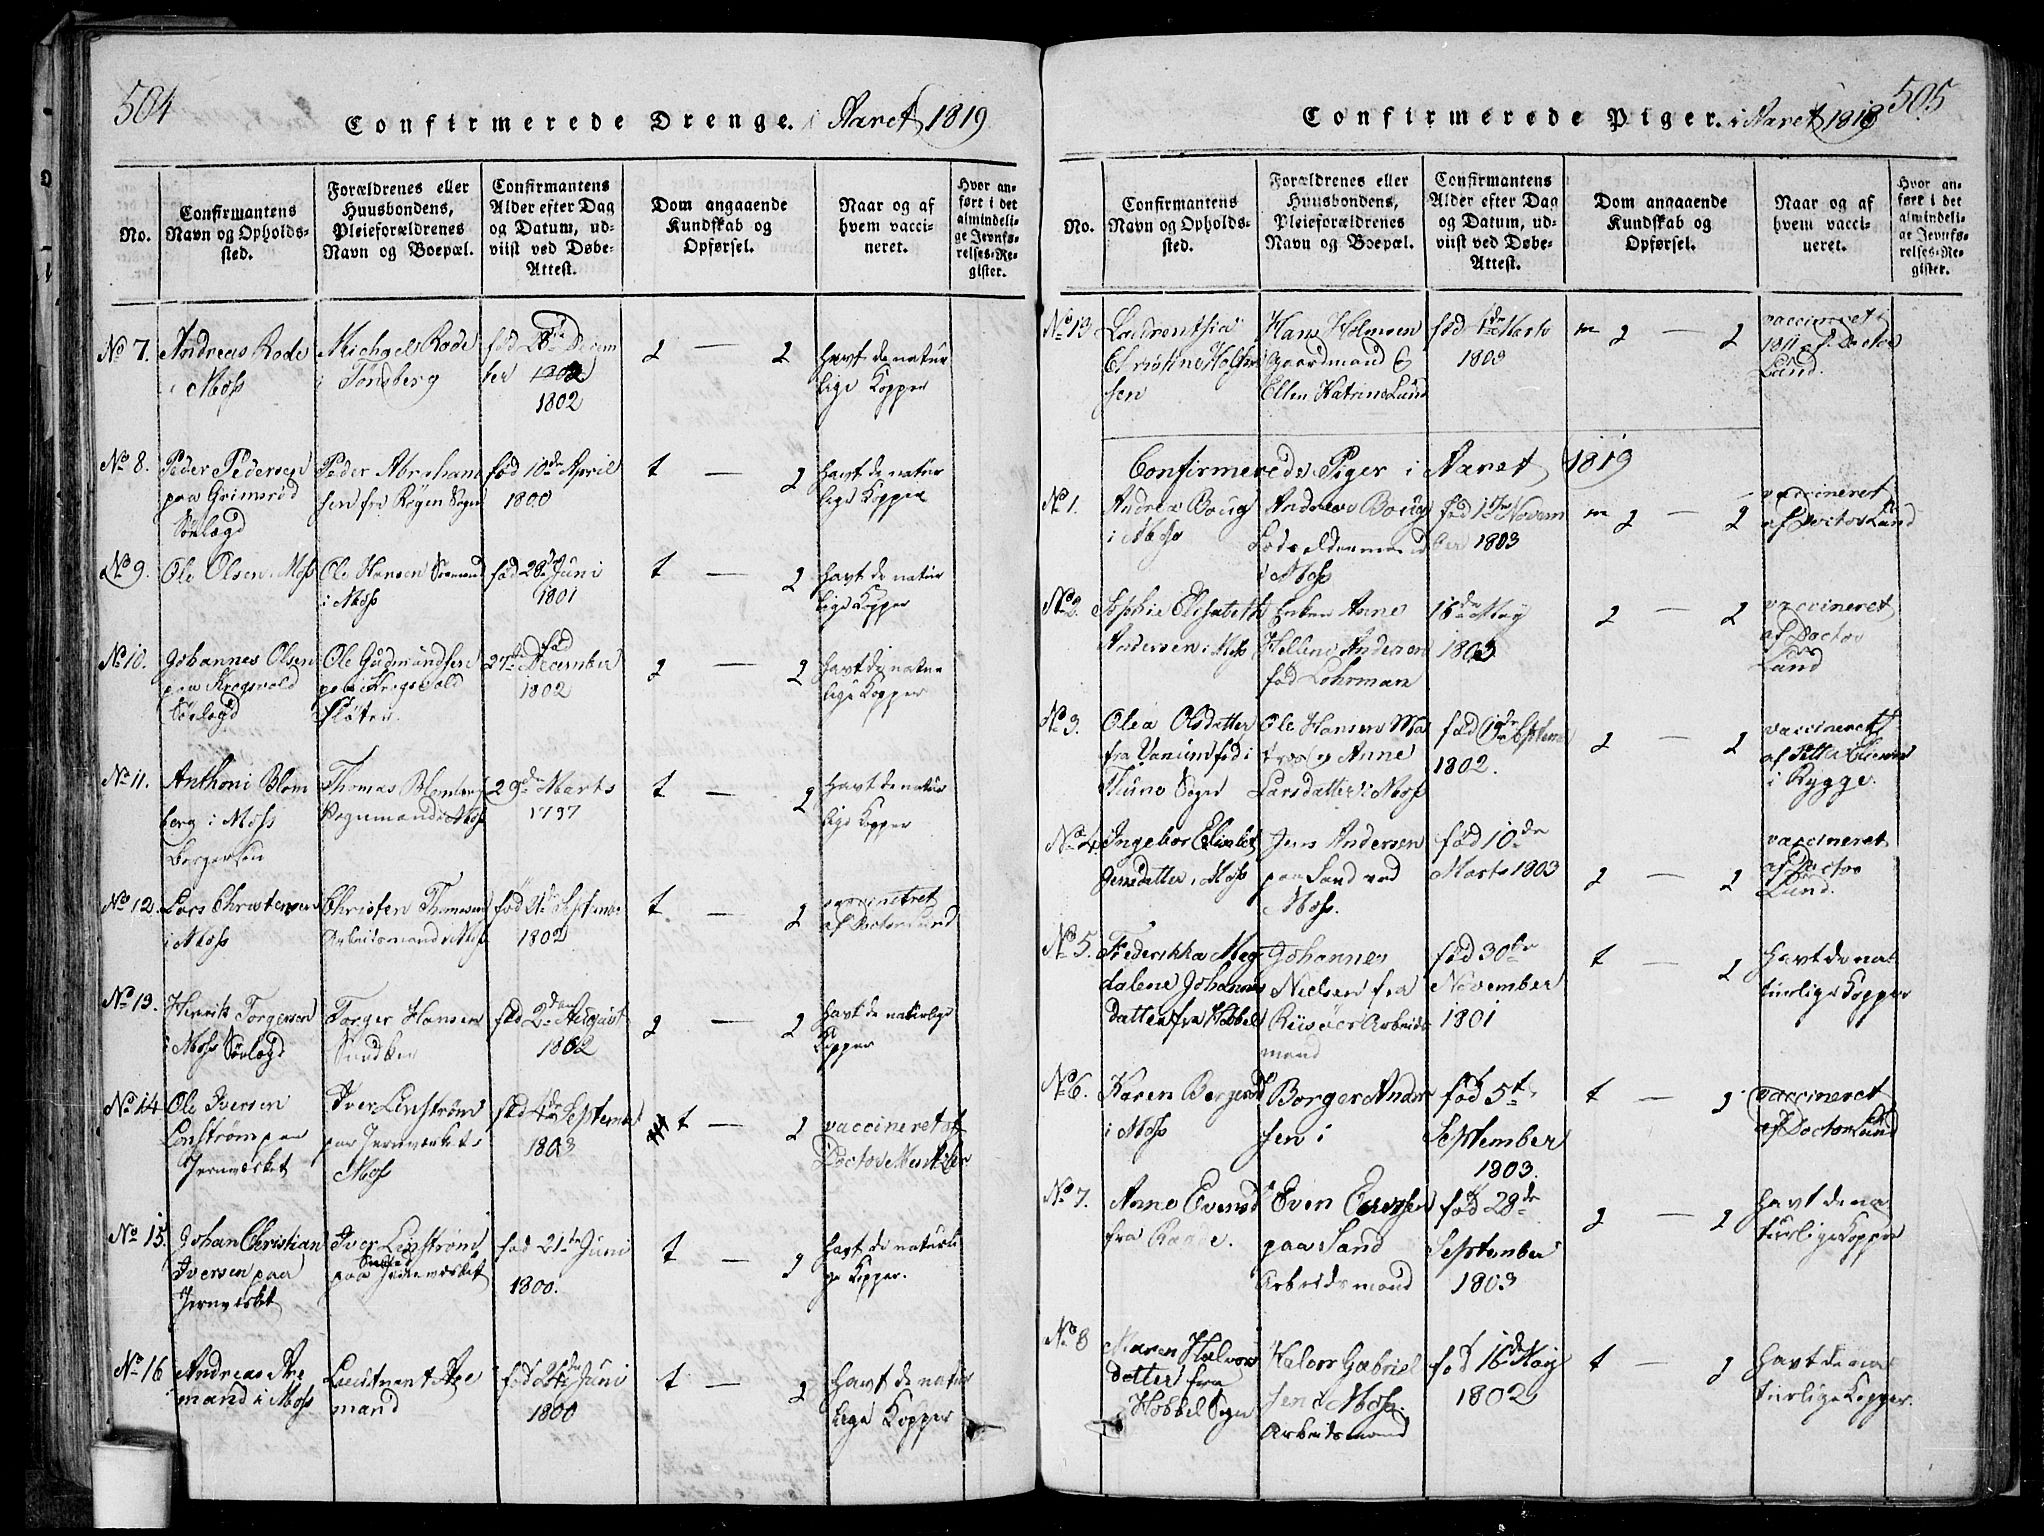 504
Confirmerede Drenge. i Aaret 1819
No.
Confirmantens
Navn og Opholds-
sted.
Forældrenes eller
Huusbondens,
Pleieforældrenes
Navn og Boepæl.
Confirmantens
Alder efter Dag
og Datum, ud-
viist ved Døbe-
Attest.
Dom angaaende
Kundskab og
Opførsel.
Naar og af
hvem vacci-
neret.
Hvor an-
ført i det
almindeli-
ge Jevnfø-
relses-Re-
gister.
No 7.
Andreas Rode
i Moss
Michael Rode
i Tønsberg
fød 28de Decem
ber 1802
1802
2 — 2
havt de natur
lige Kopper
No 8.
Peder Pedersen
paa Grimsrød
Sørlægd
Peder Abraham
sen fra Røgen Sogn
fød 10de April
1800
t — 2
havt de natur
lige Kopper
No 9.
Ole Olsen Moss
Ole Hansen Søemand
i Moss
fød 28de Juni
1801
t — 2
havt de natur
lige Kopper
No 10.
Johannes Olsen
paa Krogsvold
Sørlægd
Ole Gudmundsen
paa Krogsvold
Fløter
fød
27de December
1802
2 — 2
havt de natur
lige Kopper
No 11.
Anthoni Blom
berg i Moss
Borgersøn
Thomas Blomberg
Vognmand i Moss
29de Marts
1797
t — 2
havt de natur
lige Kopper
No 12.
Lars Christensen
i Moss
Christen Thomesen
Arbeidsmand i Moss
fød 21de Septembr
1802
t. — 2
vaccineret
af Doctor Lund
No 13.
Henrik Torgersen
i Moss Sørlægd
Torger Hansen
fød 2den August
1802
2 — 2
havt de naturlige
Kopper
No 14
Ole Iversen
Linstrøm paa
Jernværket
Iver Linstrøm
paa Jernværket
Moss
fød 4de September
1803
t — 2
vaccineret af
Doctor Mentzler
No 15.
Johan Christian
Iversen paa
Jernværket
Iver Linstrøm
Smed
paa Jernværket
fød 21de Juni
1800.
t — 2
havt de naturli
ge Kopper.
No 16
Andreas Are
mand i Moss
Lieutnant Are
mand
fød 24de Juni
1800
t — 2
havt de natur
lige Kopper
505
Confirmerede Piger. i Aaret 1818
No.
Confirmantens
Navn og Opholds-
sted.
Forældrenes eller
Huusbondens,
Pleieforældrenes
Navn og Boepæl.
Confirmantens
Alder efter Dag
og Datum, ud-
viist ved Døbe-
Attest.
Dom angaaende
Kundskab og
Opførsel.
Naar og af
hvem vacci-
neret.
Hvor an-
ført i det
almindeli-
ge Jevnfø-
relses-Re-
gister.
No 13
Laurentsia
Christine Holm
sen
Hans Holmsen
Gaardmand &
Ellen Katrine Lund
fød 1de Marts
1803
m 2 — 2
vaccineret
1811 af Doctor
Lund.
Confirmerede Piger i Aaret 1819
No 1.
Andrea Boug
i Moss
Andreas Boug
Lods Oldermand
i Moss
fød 11te Novem
ber 1803
m 2 — 2
vaccineret
af Doctor Lund
No 2.
Sophie Elisabeth
Andersen i Moss
Enken Anne
Helline Andersen
fød Lohrman
16de May
1803
2 — 2
vaccineret
af Doctor
Lund
No 3.
Olea Olsdatter
fra Vanium fød i
Thuno Sogn
Ole Hansen Ma
tros og Anne
Larsdatter i Moss
fød 19de Septem
1802.
2 — 2
vaccineret
af
i Rygge.
No 4.
Ingebor Elisabet
Jensdatter i Moss
Jens Andersen
paa Sand ved
Moss.
fød 10de
Marts 1803
2 — 2
vaccineret
af Doctor
Lund.
No 5.
Frederikka Mag
dalene Johannes
datter fra Hobbel
Johannes
Nielsen fra
Riisøer Arbeids
mand
fød 30te
November
1801
t — 2
havt de na
turlige Kopper
No 6.
Karen Borgersd
i Moss
Borger Ander
sen i
fød 5te
September
1803.
t — 2
vaccineret
af Doctor Lund
No 7.
Anne Evensd
fra Raade.
Even Evensen
paa Sand
Arbeidsmand
fød 28de
September
1803
2 — 2
havt de na
turlige Kopper
No 8
Maren Halvors
datter fra
Hobbel Sogn
Halvor Gabriel
sen i Moss.
Arbeidsmand
fød 16de May
1802
t — 2
havt de na
turlige Kopper.